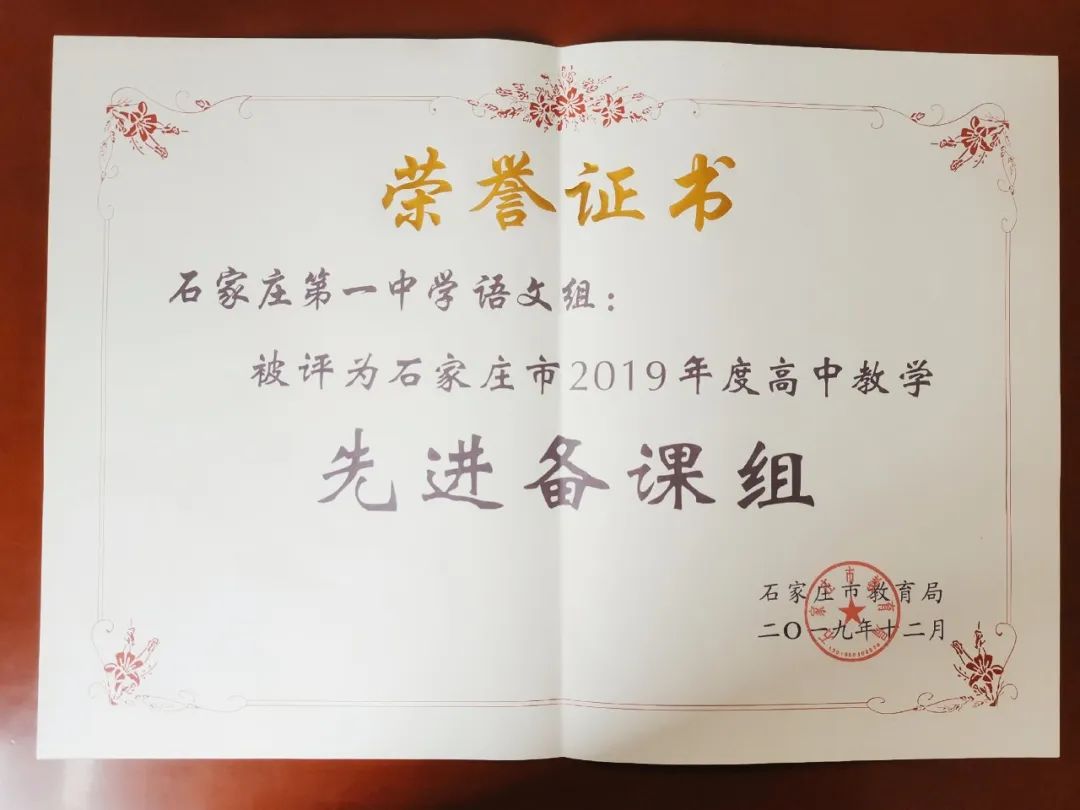 荣誉证书
石家庄第一中学语文组：
被评为石家庄市2019年度高中教学
先进备课组
石家庄市教育局
二〇一九年十二月